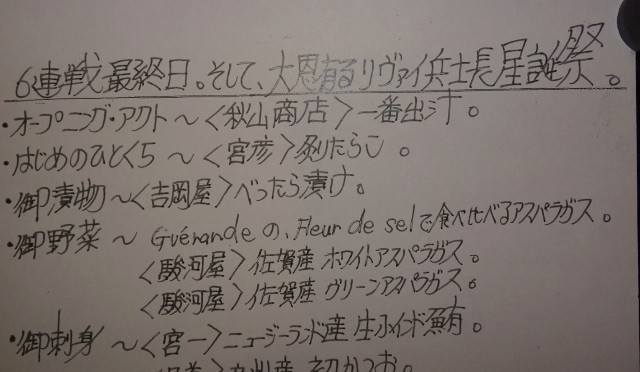 6連戦最終日。そして、大恩有るリヴァイ兵士長星誕祭。
・オープニング・アクト～〈秋山商店〉一番出汁。
・はじめのひとくち～〈宮彦〉炙りたらこ。
・御漬物～〈吉岡屋〉べったら漬け。
・御野菜～Guérandeの、Fleur de selで食べ比べるアスパラガス。
〈駿河屋〉佐賀産 ホワイトアスパラガス。
〈駿河屋〉佐賀産 グリーンアスパラガス。
・御刺身～〈宮一〉ニュージーランド産 生インド鮪。
産 初かつお。